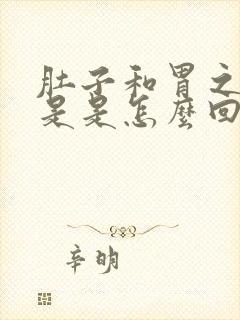 肚子和胃之
是是怎麼回
辛明